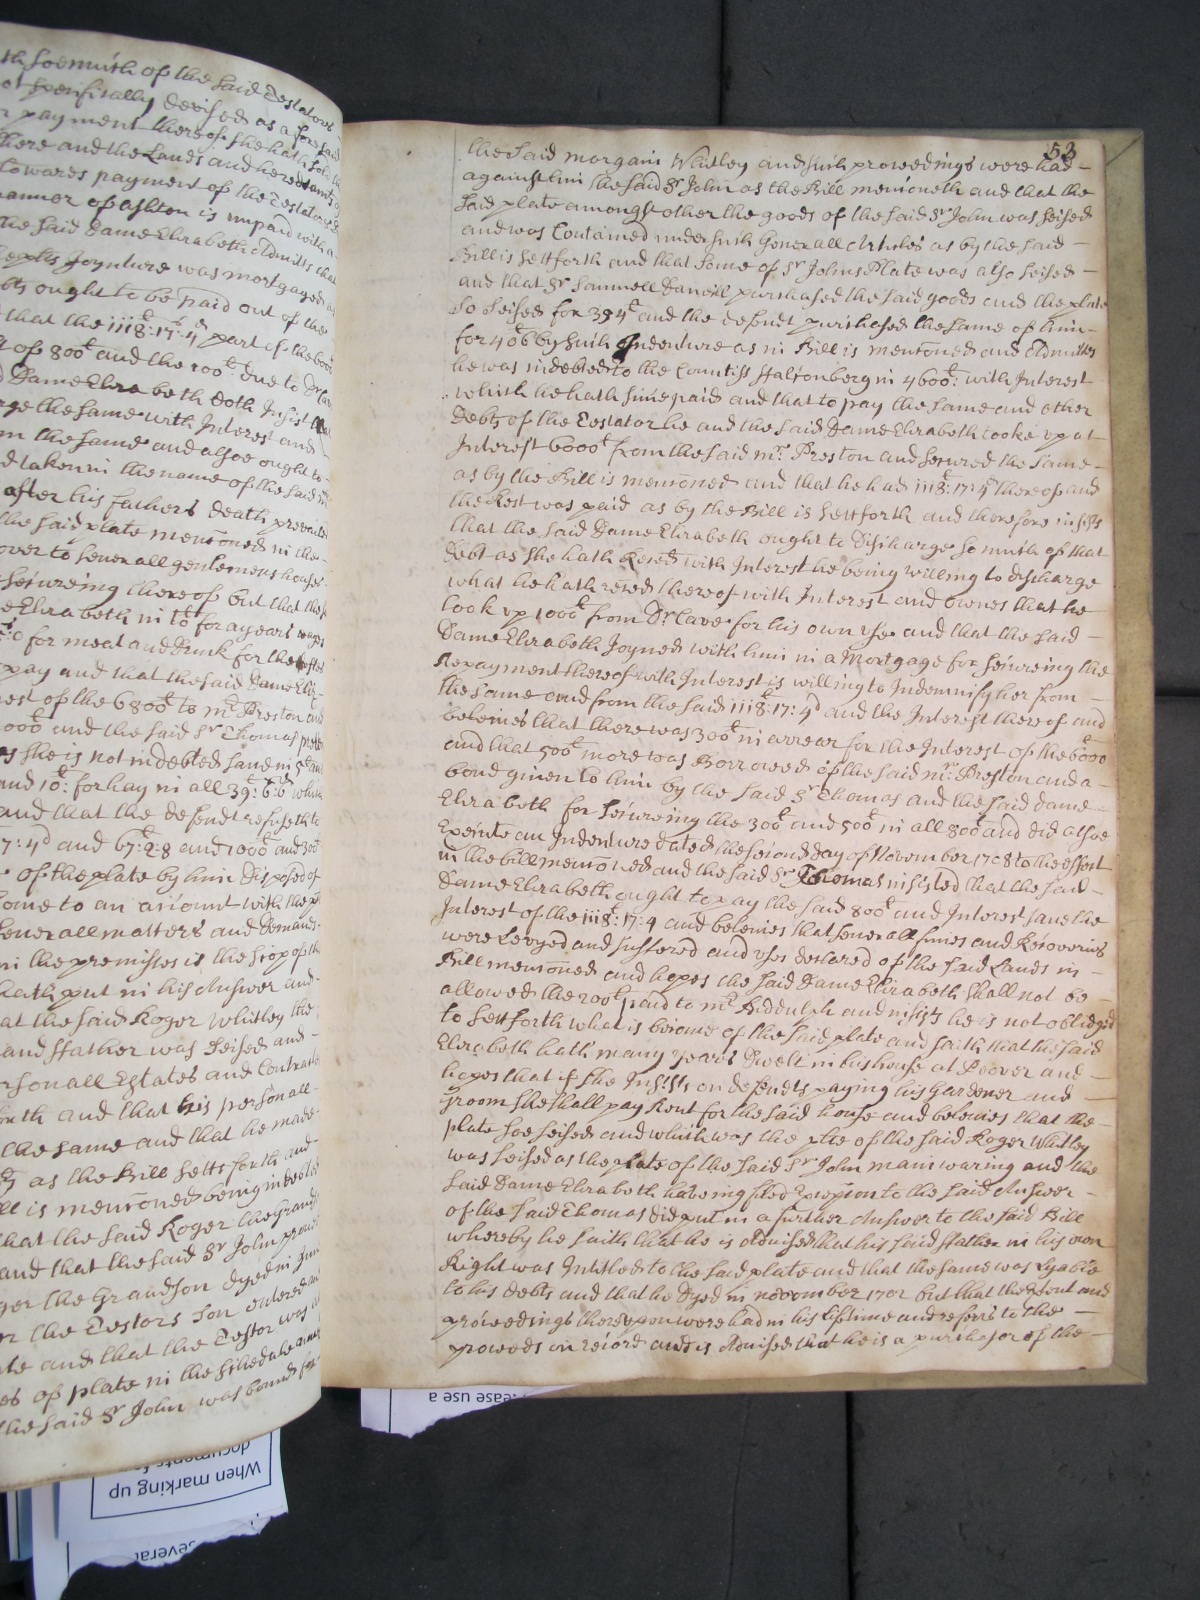 th soe much of the said Testators
ot specifically devised as a foresaid
payment thereof she hath sold
there and the Lands and
towards payment of the Testators
manner of Ashton is unpaid with
the said Dame Elizabeth Admitts that
Joynture was mortgaged
ought to be paid out of the
that the 1118£:17s:4d part of the
of 800£ and the 200£ due to Dr
Dame Eliza beth doth Insist that
the same with Interest and
the same and alsoe ought to
d taken in the name of the said
after his fathers death prevailed
the said plate menconed in the
over to severall gentlemens houses
secureing thereof but that the
Elizabeth in 10£ for a years wages
for meat and drink for the
pay and that the said Dame Eliz
rest of the 6800£ to Mr Preston and
000£ and the said Sr Thomas
as she is not indebted save in
and 10s: for hay in all 39: 6: 6
and that the defendt refuseth to
7: 4d and 67: 2: 8 and 1000£ and 300£
of the plate by him disposed of
come to an account with the
severall matters and demands
in the premisses is the scope of the
hath put in his Answer and
at the said Roger Whitley the
and ffather was seised and
personall Estates and
and that his personall
the same and that he made
as the Bill setts forth and
ll is menconed being indebted
that the said Roger the grand
and that the said Sr John
ger the Grandson dyed in June
the Testors son entered
and that the Testor was
of plate in the schedule
the said Sr John was bound for
53
the said morgain Whitley and such proceedings were had -
against him the said Sr John as the Bill menconeth and that the
said plate amongst other the goods of the said Sr John was seised
and was Contained under such Generall Articles as by the said -
Bill is sett forth and that some of Sr Johns Plate was also seised -
and that Sr Samuell Daniell purchased the said goods and the plate
so seised for 394£ and the defendt purchased the same of him -
for 406 by such Indenture as in Bill is menconed and Admitts
he was indebted to the Countiss in 4600£: with Interest
which he hath since paid and that to pay the same and other
debts of the Testator he and the said Dame Elizabeth tooke up at
Interest 6000£ from the said mr. Preston and secured the same -
as by the Bill is menconed and that he had 1118£:17:4d thereof and
the Rest was paid as by the Bill is sett forth and therefore insists
that the said Dame Elizabeth ought to discharge so much of that
debt as she hath Reced with Interest he being willing to discharge
what he hath reced thereof with Interest and ownes that he
took up 1000£ from Dr Cave for his own use and that the said -
Dame Elizabeth Joyned with him in a Mortgage for secureing the
Repayment thereof with Interest is willing to Indemnify her from -
the same and from the said 1118£:17:4d and the Interest thereof and
beleives that there was 300£ in arrear for the Interest of the 6000£
and that 500£ more was Borrowed of the said mr. Preston and a -
bond given to him by the said Sr Thomas and the said Dame -
Elizabeth for secureing the 300£ and 500£ in all 800£ and did alsoe
Execute an Indenture dated the second day of November 1708 to the effect
in the bill menconed and the said Sr Thomas insisted that the said -
Dame Elizabeth ought to pay the said 800£ and Interest save the
Interest of the 1118£:17:4 and beleives that severall fines and Recoveries
were Levyed and suffered and uses declared of the said Lands in -
Bill menconed and hopes the said Dame Elizabeth shall not be -
allowed the 200£ paid to mr. Biddulph and insists he is not oblidged
to sett forth what is become of the said plate and saith that the said
Elizabeth hath many years dwelt in his house at Peover and -
hopes that if she Insists on defendts paying his Gardener and -
groom she shall pay Rent for the said house and beleives that the -
plate soe seised and which was the plte of the said Roger Whitley
was seised as the plate of the said Sr John mainwaring and the
said Dame Elizabeth haveing filed Excepcon to the said Answer -
of the said Thomas did put in a further Answer to the said Bill
whereby he saith that he is Advised that his said ffather in his own
Right was Intitled to the said plate and that the same was Lyable
to his debts and that he dyed in november 1702 but that the Extent and
proceedings thereupon were had in his Lifetime and refers to the -
proceeds on record and is Advised that he is a purchasor of the -
ease use a
When marking up
documents
several